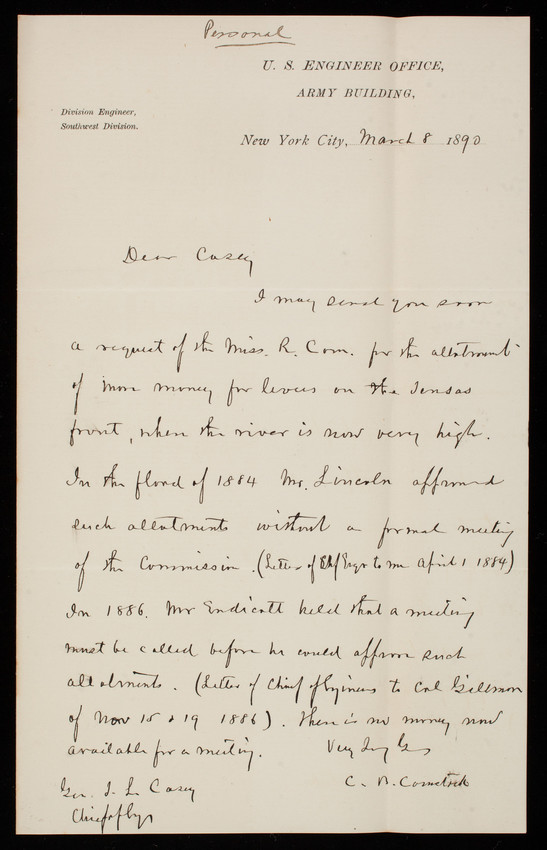 Personal
U. S. ENGINEER OFFICE,
ARMY BUILDING,
Division Engineer,
Southwest Division.
New York City, March 8 1890
Dear Casey
I may send you soon
a request of the Miss. R. Com. for the allotment
of more money for levees on the Tensas
front, when the river is now very high.
In the flood of 1884 Mr. Lincoln approved
such allotments without a formal meeting
of the Commission. (Letter of Chf Engr to me April 1 1884)
In 1886. Mr Endicott held that a meeting
must be called before he could approve such
allotments. (Letter of Chief of Engineers to Col Gillmore
of Nov 15 & 19 1886). There is no money now
available for a meeting.
Very Truly Yrs
C. B. Comstock
Gen. T. L. Casey
Chief of Engrs